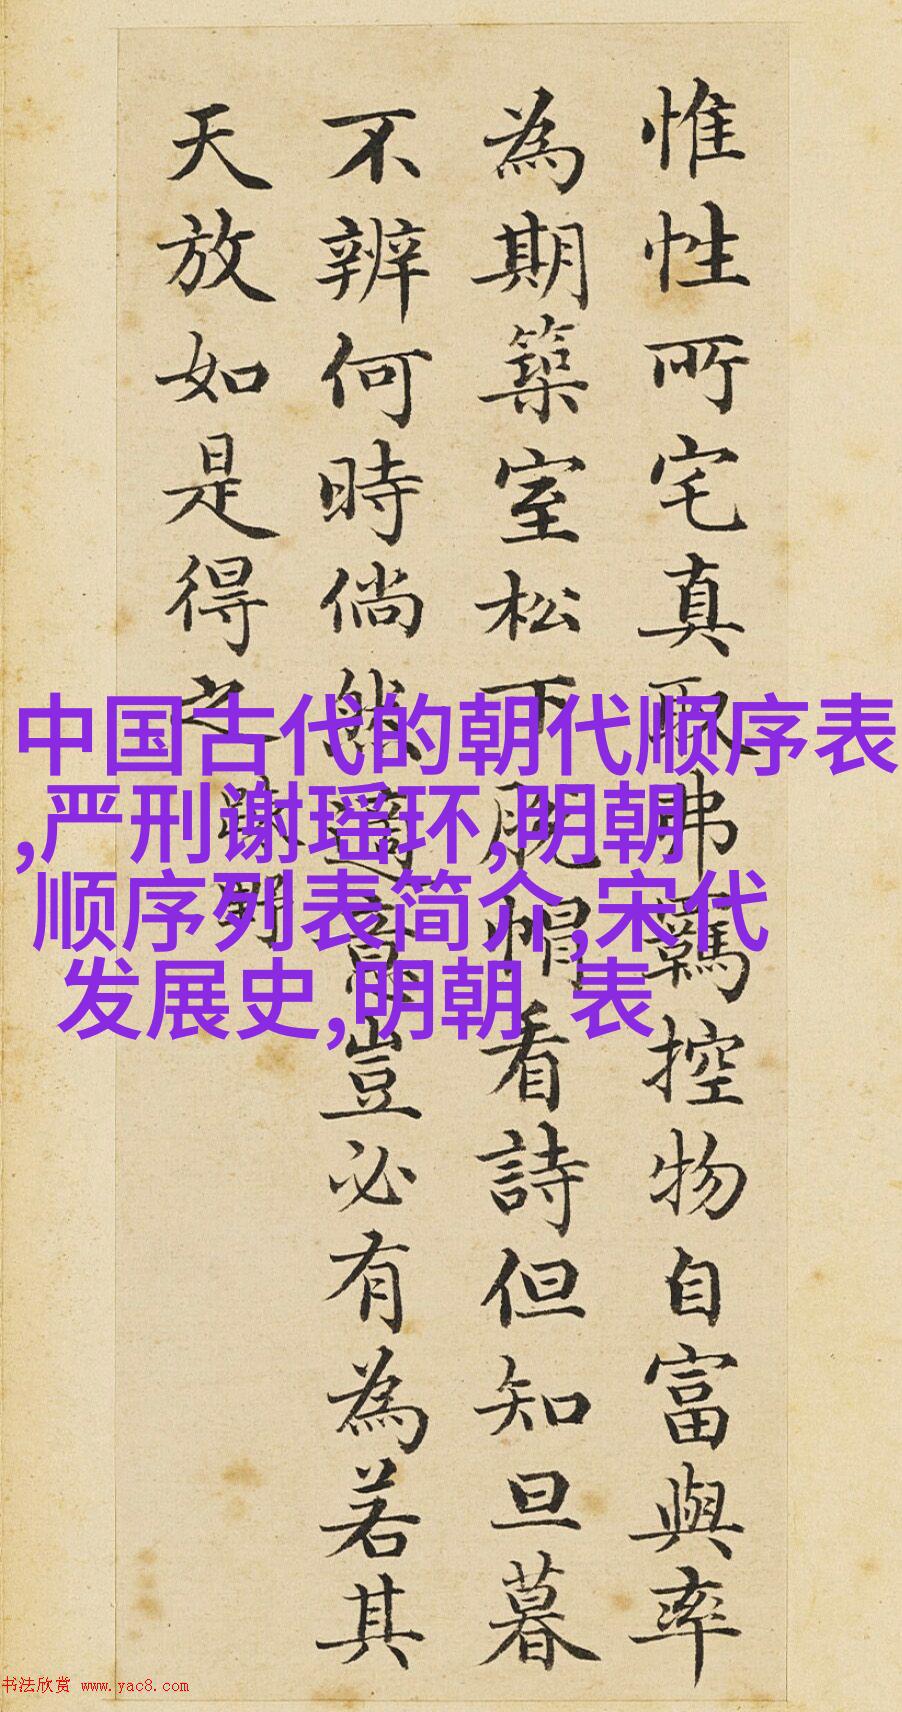 惟性所宅真取弗羈控物自富與率
為期築室松下脱帽看詩但知旦暮
不辨何時倘然適意豈必有為若其
天放如是得之
疎野
中国古代的朝代顺序表
,严刑谢瑶环,明朝
顺序列表简介,宋代
发展史,明朝 表
书法欣赏 www.yac8.com